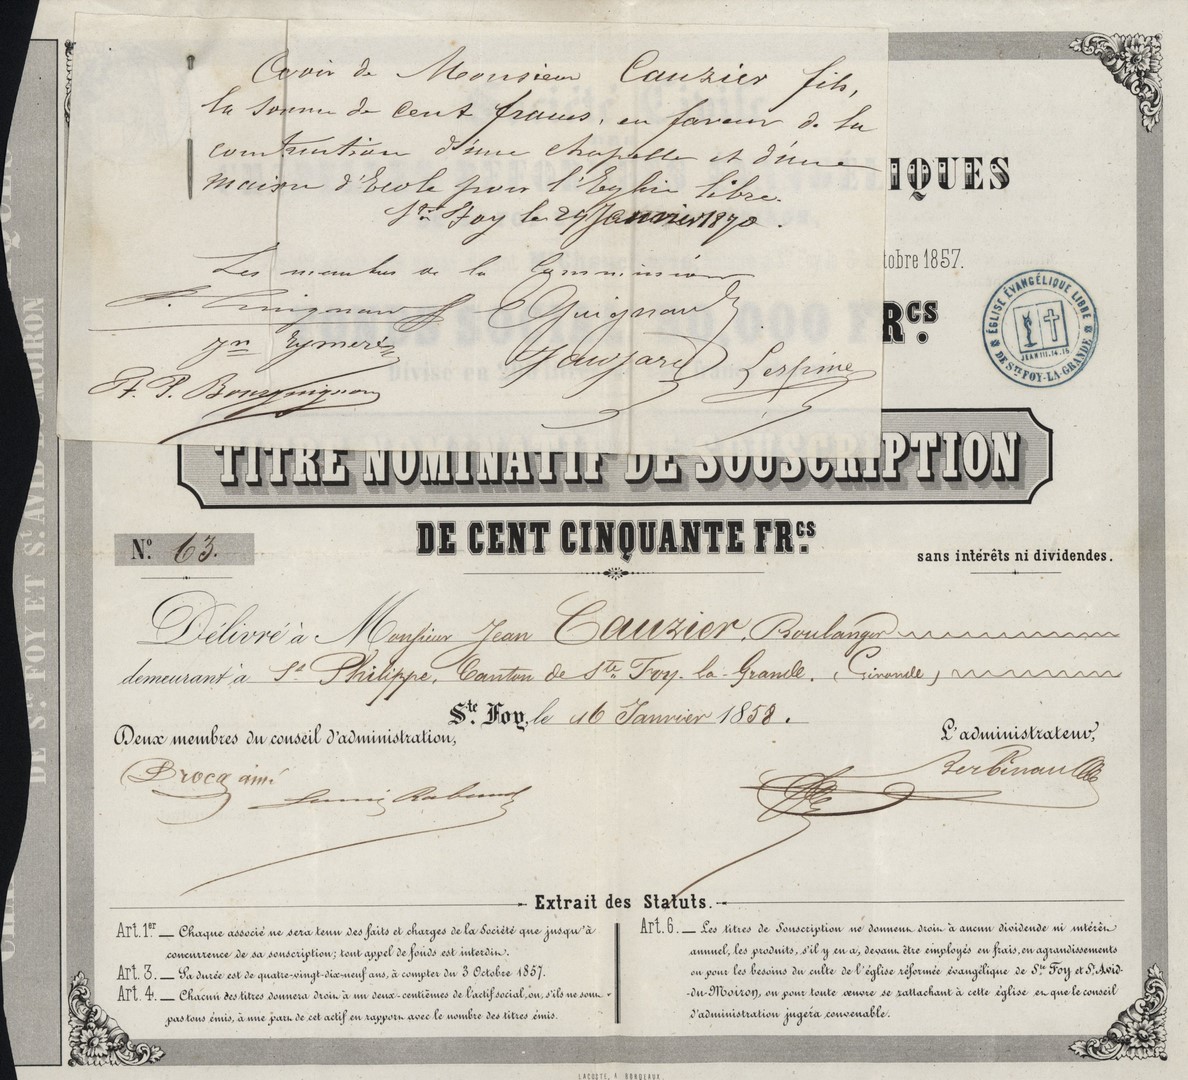 Avoir de Monsieur Cauzier fils,
la somme de cent francs, en faveur de la
construction d'une chapelle et d'une
maison d'Ecole pour l'Eglise libre.
Ste Foy le 29 Janvier 1870.
Les membres de la Commission
E Guignard
Lespine
IQUES
tobre 1857.
RCS.
ÉGLISE ÉVANGÉLIQUE LIBRE
JEAN III. 14. 15
DE STE FOY-LA-GRANDE
TITRE NOMINATIF DE SOUSCRIPTION
DE CENT CINQUANTE FRCS.
No. 63.
sans intérêts ni dividendes.
Délivré à Monsieur Jean Cauzier, Boulanger
demeurant à St Philippe, Canton de Ste Foy-la-Grande. (Gironde)
Ste. Foy, le 16 Janvier 1858.
Deux membres du conseil d'administration,
L'administrateur,
Brocq aîné
Extrait des Statuts.
Art. 1er — Chaque associé ne sera tenu des faits et charges de la Société que jusqu'à
concurrence de sa souscription; tout appel de fonds est interdit.
Art. 3. — Sa durée est de quatre-vingt-dix-neuf ans, à compter du 3 Octobre 1857.
Art. 4 — Chacun des titres donnera droit à un deux-centièmes de l'actif social, ou, s'ils ne sont
pas tous émis, à une part de cet actif en rapport avec le nombre des titres émis.
Art. 6. — Les titres de Souscription ne donnent droit à aucun dividende ni intérêt
annuel, les produits, s'il y en a, devant être employés en frais, en agrandissements
ou pour les besoins du culte de l'église réformée évangélique de Ste Foy et St. Avid-
du-Moiron, ou pour toute œuvre se rattachant à cette église et que le conseil
d'administration jugera convenable.
LACOSTE, A BORDEAUX.
DE STE FOY ET ST AVID DU MOIRON